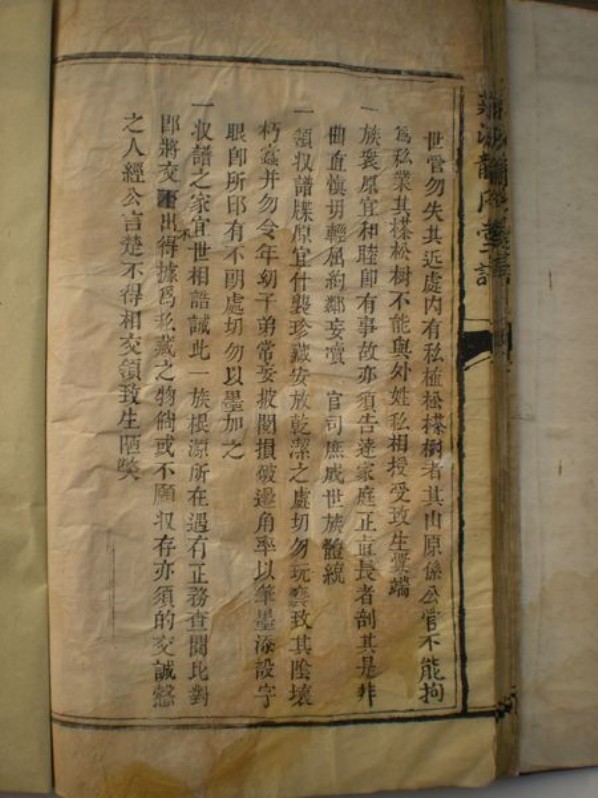 世管勿失其近處內有私植松檪樹者其山原係公管不能拘
爲私業其檪松樹不能與外姓私相授受致生釁端
一族衆原宜和睦卽有事故亦須告達家庭正直長者剖其是非
曲直慎切輕屈約鄰妄凟 官司庶成世族體統
一領收譜牒原宜什襲珍藏安放乾潔之處切勿玩褻致其陰壞
朽蠹并勿令年幼子弟常妄披閱損破邊角率以筆墨添設字
眼卽所印有不明處切勿以墨加之
一收譜之家宜世相誥誡此一族根源所在遇有正務查閱比對
卽將交出不得據爲私藏之物倘或不願收存亦須的交誠慤
之人經公言楚不得相交領致生陋獘
堂譜